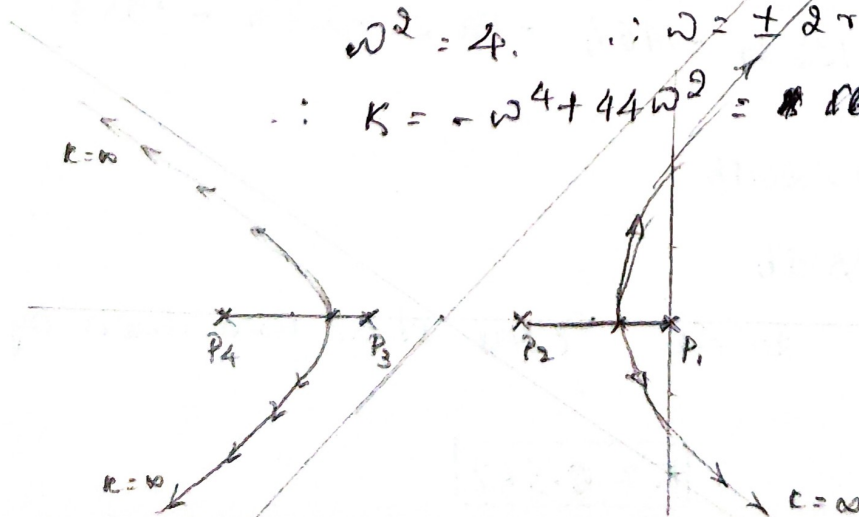 ω² = 4. ∴ ω = ± 2 r
∴ K = - ω⁴ + 44ω² =
K = ∞
P4 P3 P2 P1
K = ∞
K = ∞